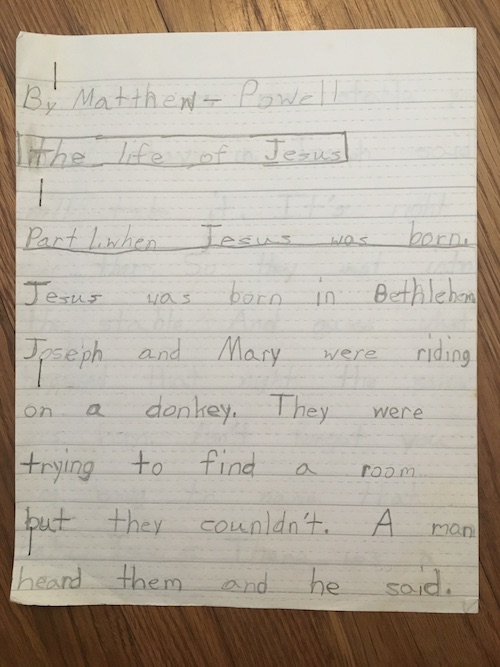 By Matthew- Powell
The life of Jesus
Part 1. when Jesus was born.
Jesus was born in Bethlehem
Joseph and Mary were riding
on a donkey. They were
trying to find a room
but they counldn't. A man
heard them and he said.